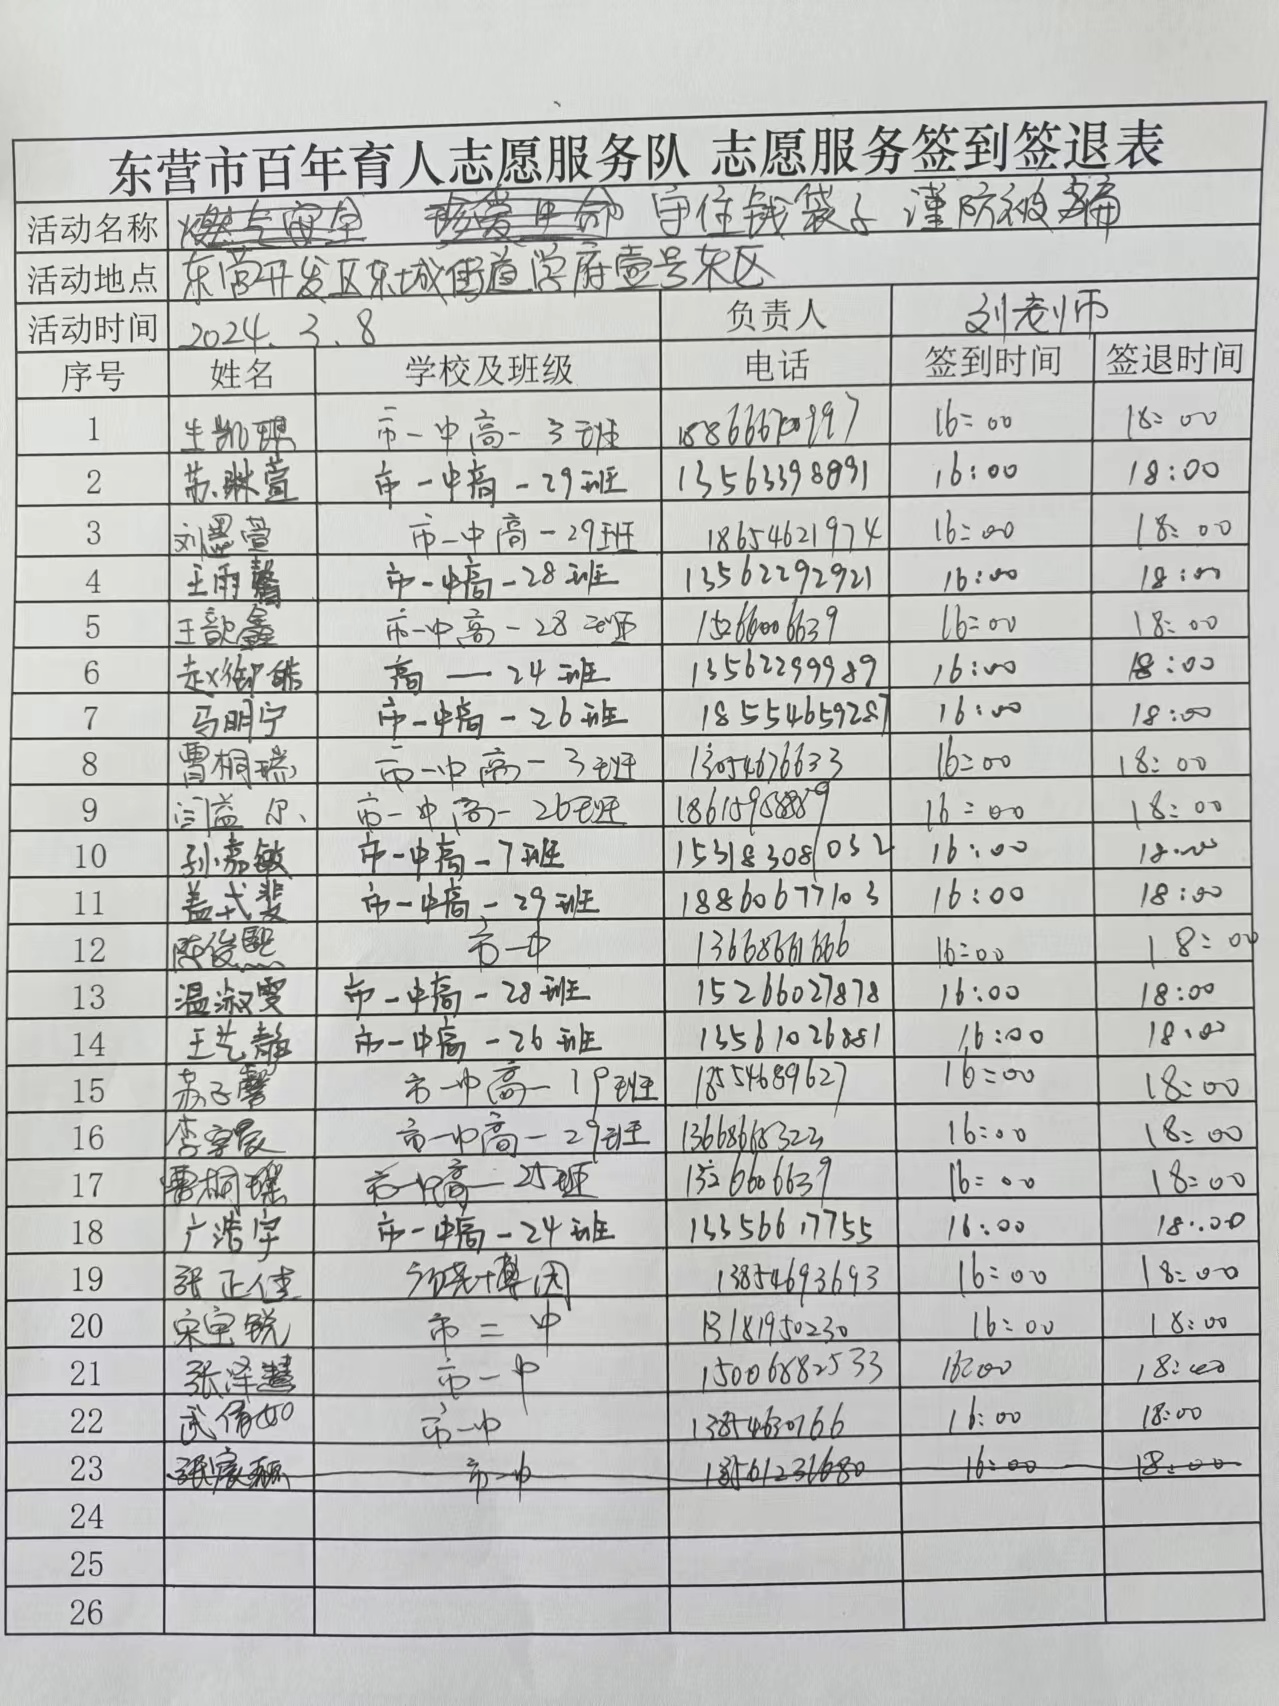 东营市百年育人志愿服务队 志愿服务签到签退表
活动名称 守住钱袋子 谨防被骗
活动地点 东营开发区东城街道学府壹号东区
活动时间 2024.3.8 负责人 刘老师
序号 姓名 学校及班级 电话 签到时间 签退时间
1 生凯琪 市一中高一3班 16:00 18:00
2 苏琳萱 市一中高一29班 13563398891 16:00 18:00
3 刘墨萱 市一中高一29班 18654621974 16:00 18:00
4 王雨馨 市一中高一28班 13562292921 16:00 18:00
5 王歆鑫 市一中高一28班 15266006639 16:00 18:00
6 赵御皓 高一24班 13562299989 16:00 18:00
7 马明宁 市一中高一26班 18554659287 16:00 18:00
8 曹桐瑞 市一中高一3班 13054676633 16:00 18:00
9 闫益尔 市一中高一26班 16:00 18:00
10 孙嘉敏 市一中高一7班 15318308032 16:00 18:00
11 盖弋斐 市一中高一29班 18860677103 16:00 18:00
12 陈俊熙 市一中 13668661666 16:00 18:00
13 温淑雯 市一中高一28班 15266027878 16:00 18:00
14 王艺静 市一中高一26班 13561026881 16:00 18:00
15 苏子馨 市一中高一19班 18554689627 16:00 18:00
16 李宇宸 市一中高一29班 13668668322 16:00 18:00
17 曹桐瑶 市一中高一25班 16:00 18:00
18 广浩宇 市一中高一24班 13356617755 16:00 18:00
19 张正佳 13854693693 16:00 18:00
20 宋宝锐 市二中 13181950230 16:00 18:00
21 张泽慧 市一中 15006882533 16:00 18:00
22 武倩如 市一中 13854630766 16:00 18:00
23 市一中 13561231680 16:00 18:00
24
25
26